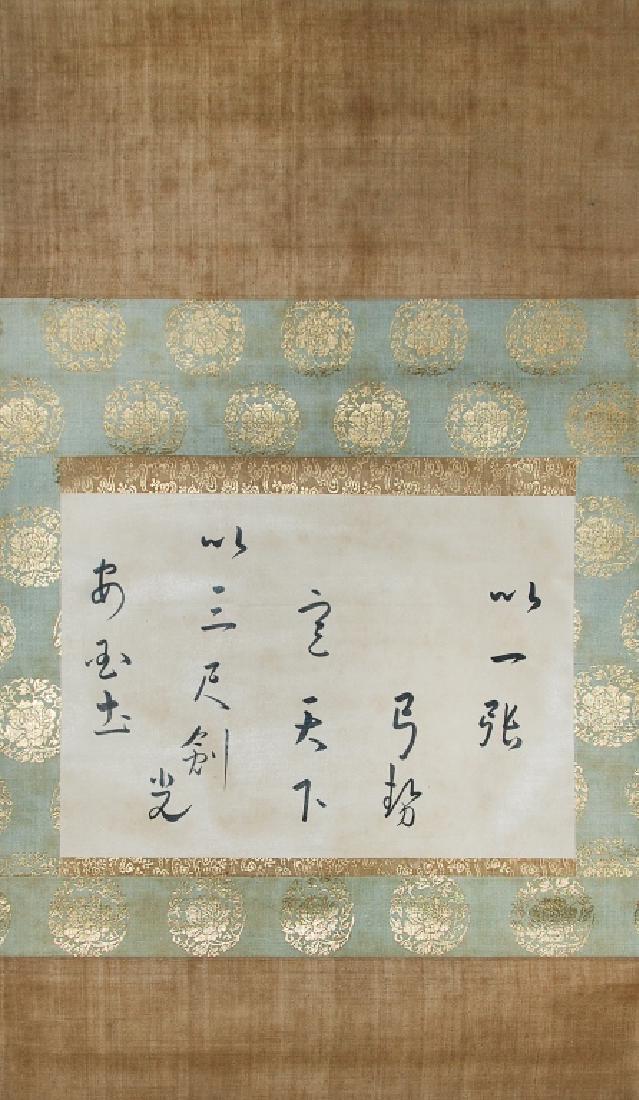 以一張
弓勢
定天下
以三尺剣
光
安国土